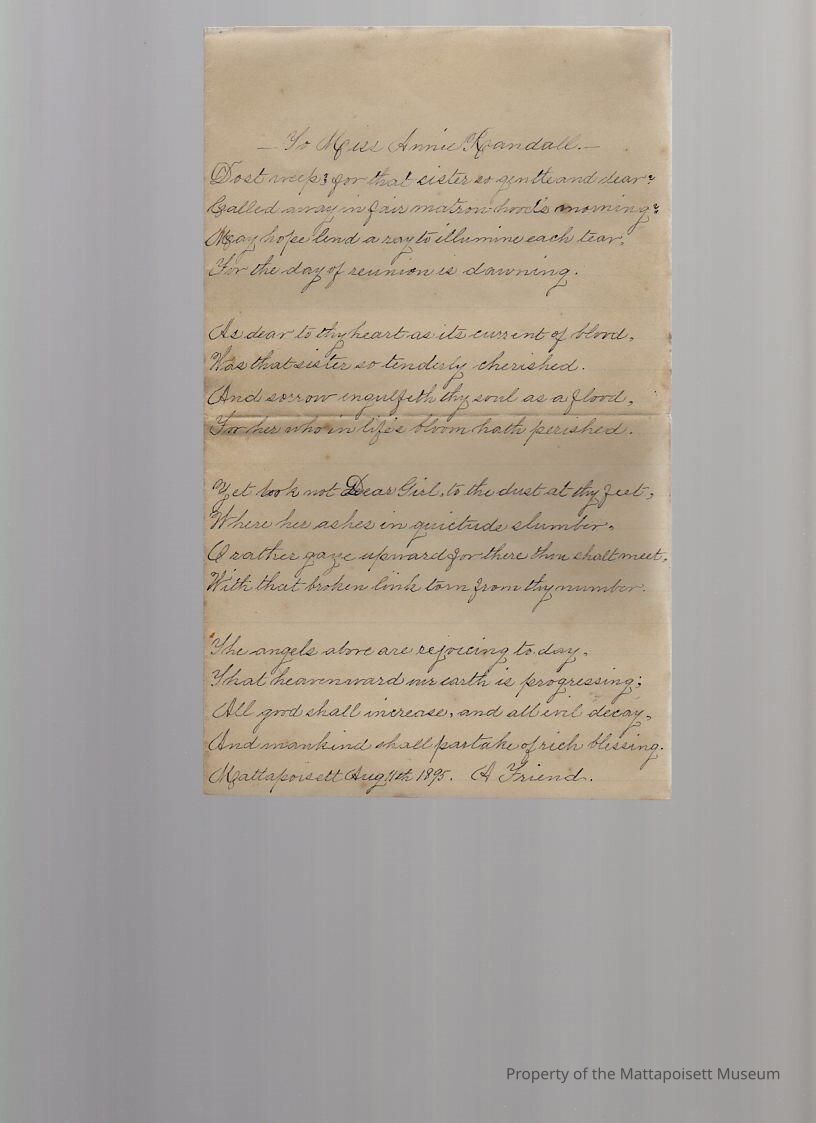 — To Miss Annie Randall. —
Dost weep? for that sister so gentle and dear?
Called away in fair matron-hood's morning?
May hope lend a ray to illumine each tear,
For the day of reunion is dawning.
As dear to thy heart as its current of blood,
Was that sister so tenderly cherished.
And sorrow ingulfeth thy soul as a flood,
For her who in life's bloom hath perished.
Yet look not Dear Girl, to the dust at thy feet,
Where her ashes in quietude slumber,
O rather gaze upward for there thou shalt meet,
With that broken link torn from thy number.
The angels above are rejoicing to day,
That heavenward our earth is progressing;
All good shall increase, and all evil decay,
And mankind shall partake of rich blessing.
Mattapoisett Aug, 11th 1895. A Friend.
Property of the Mattapoisett Museum